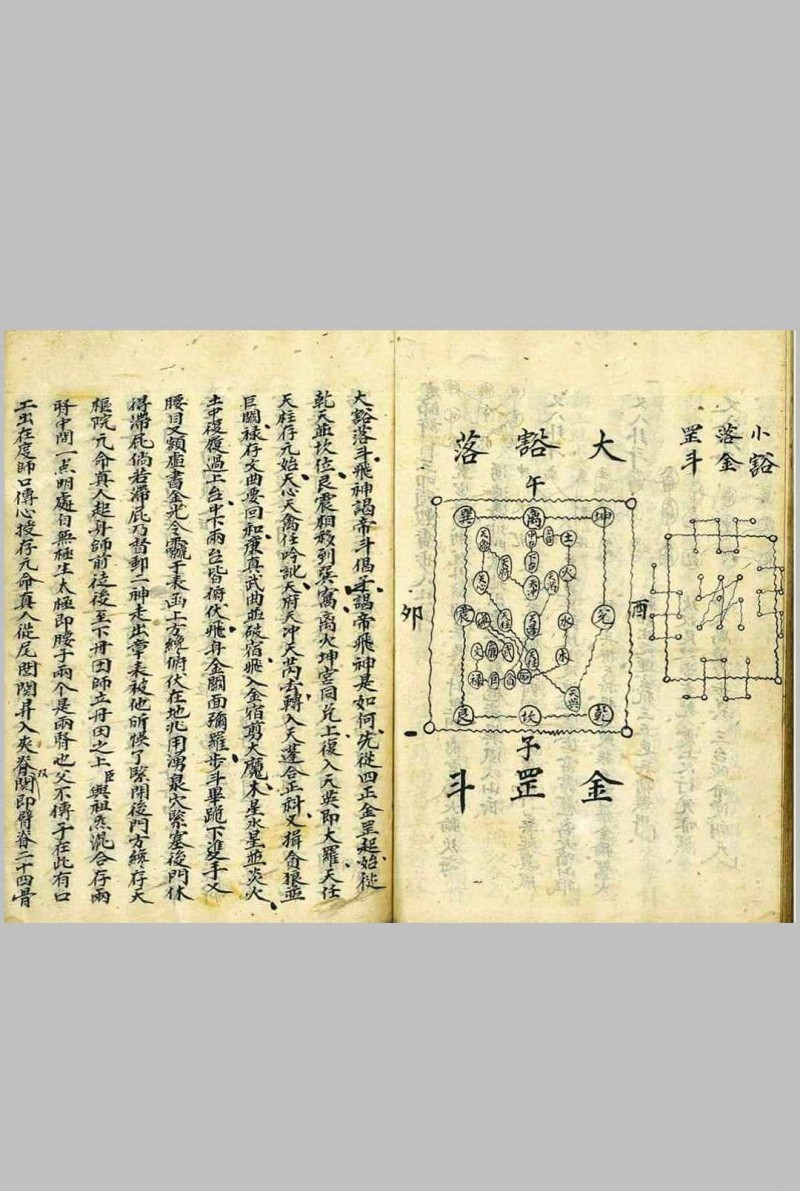 小豁
落金
罡斗
大豁落
午
酉
卯
子
金罡斗
巽 離 坤
震 兌
艮 坎 乾
土
火
水
木
大豁落斗飛神謁帝斗偈子謁帝飛神是如何先從四正金罡起始從
乾天並坎位艮震相教列巽窩離火坤宮同兌上復入天英即大羅天任
天柱存元始天心天禽任吟訛天府天冲天芮去轉入天蓬合正科又揖貪狼並
巨閣祿存文曲要回和廉真武曲並破宿飛入金宿剪大魔木星水星並炎火
土中復履過上台中下兩台皆俯伏飛身金闕面彌羅步斗畢跪下進手又
腰目又額虛書金光令𩆜于表函上方纔俯伏在地兆用湧泉穴緊塞後門休
得滯屁倘若滯屁乃督郵二神走出章表被他所悞了緊閉後門方纔存天
樞院元命真人起身師前從後至下丹田師立丹田之上臣與祖炁混合存兩
腎中間一点明處自無極生太極即腰子兩个是兩腎也父不傳子在此有口
工出在度師口傳心授存元命真人從尾閭関昇入夾脊関双即臂脊二十四骨